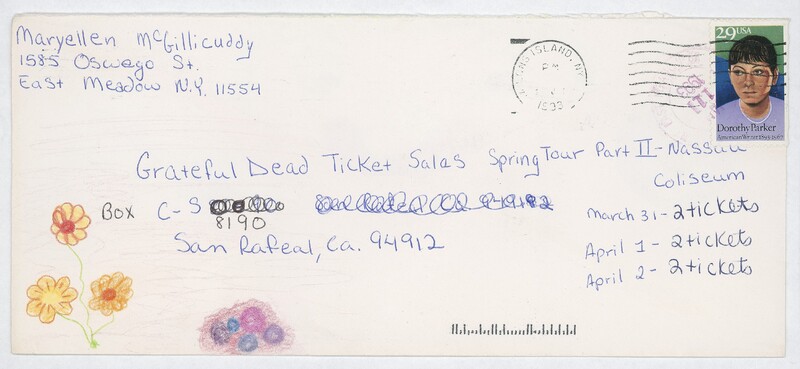 Maryellen McGillicuddy
1585 Oswego St.
East Meadow N.Y. 11554
LONG ISLAND, NY
PM
1993
29 USA
Dorothy Parker
American Writer 1893-1967
Grateful Dead Ticket Sales Spring Tour Part II - Nassau
Coliseum
Box C-S
8190
San Rafeal, Ca. 94912
March 31 - 2 tickets
April 1 - 2 tickets
April 2 - 2 tickets